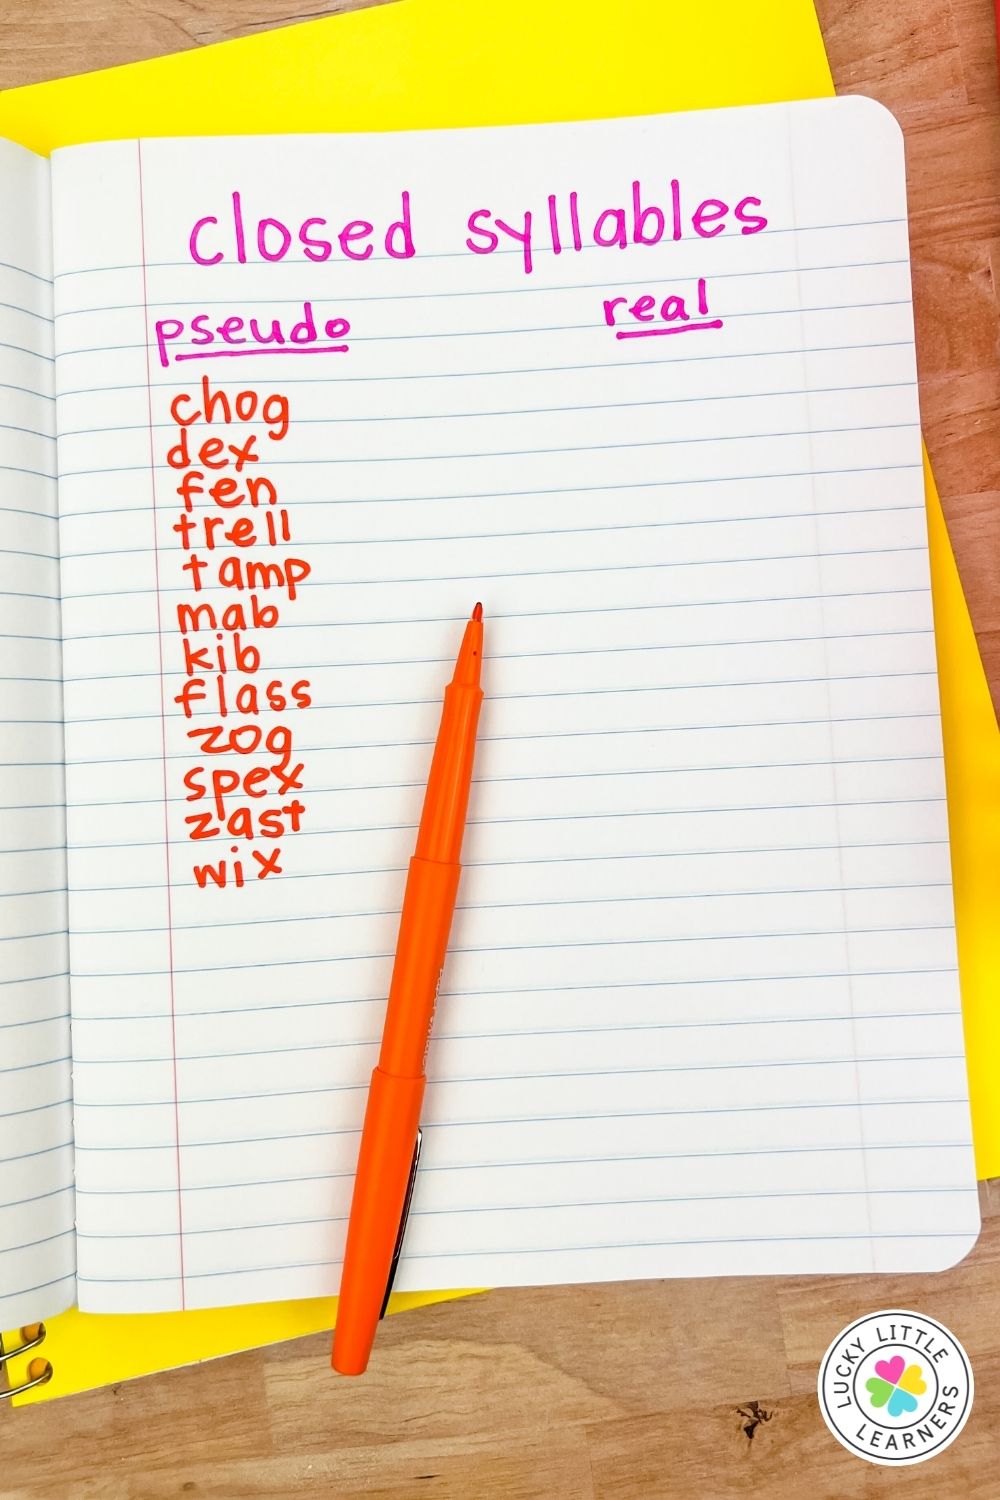 closed syllables
pseudo real
chog
dex
fen
trell
tamp
mab
kib
flass
zog
spex
zast
wix
LUCKY LITTLE
LEARNERS